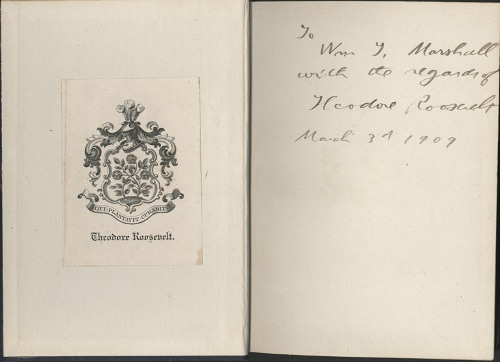 QUI·PLANTAVIT·CURABIT
Theodore Roosevelt.
To
Wm T. Marshall
with the regards of
Theodore Roosevelt
March 3d 1909